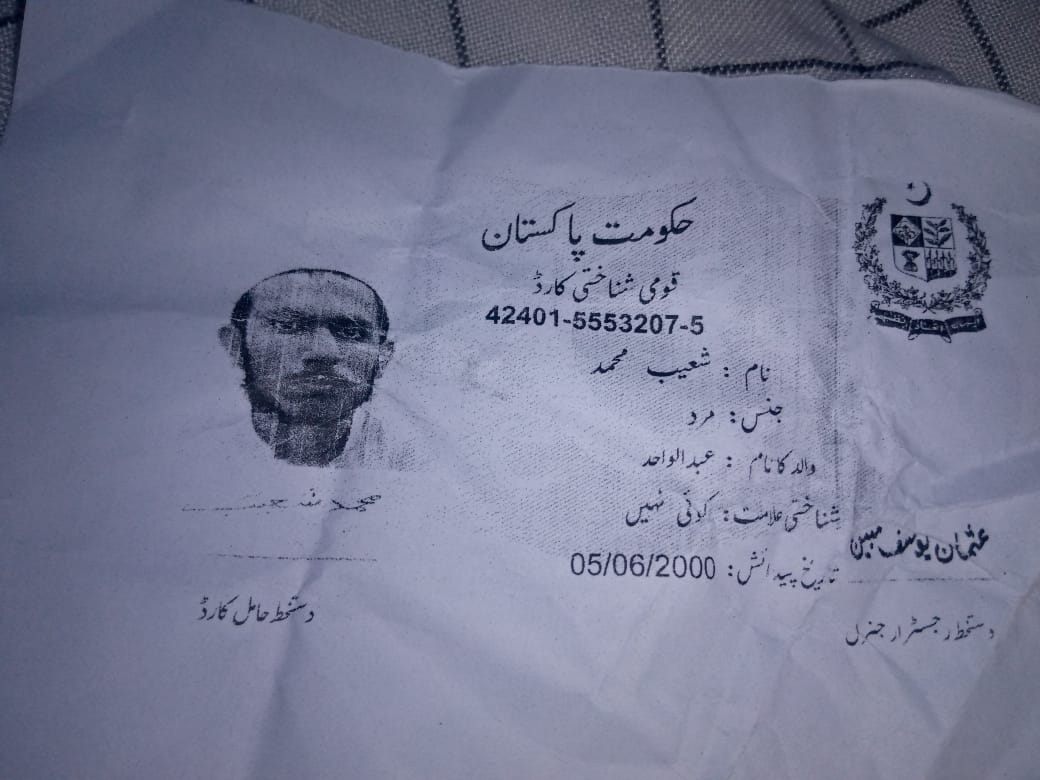 حکومت پاکستان
قومی شناختی کارڈ
42401-5553207-5
نام : شعیب محمد
جنس: مرد
والد کا نام : عبدالواحد
شناختی علامت: کوئی نہیں
تاریخ پیدائش: 05/06/2000
عثمان یوسف مبین
دستخط رجسٹرار جنرل
دستخط حامل کارڈ